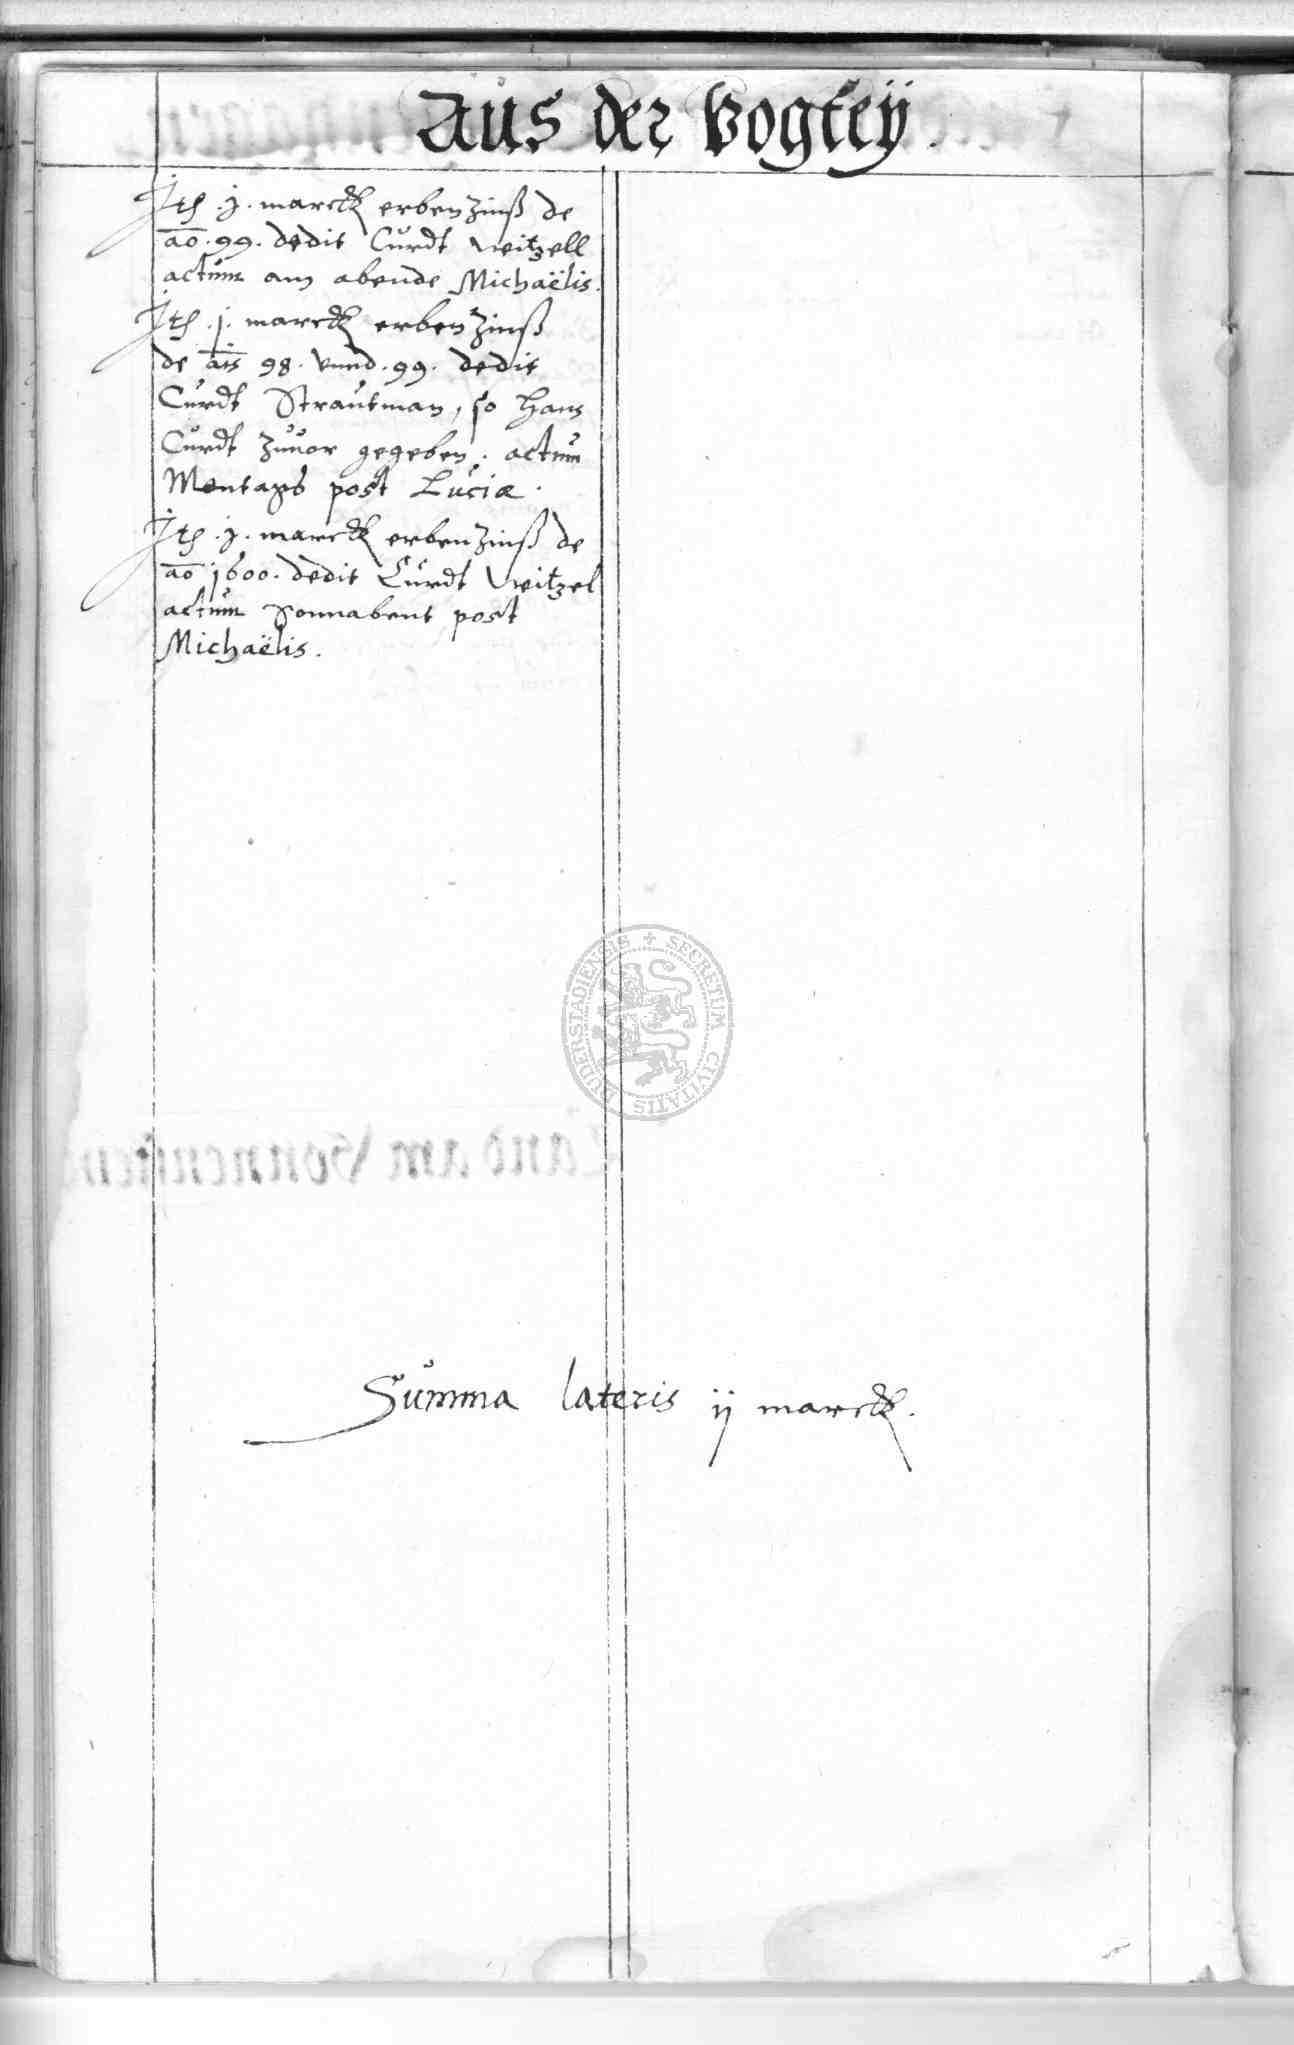 Aus der Vogteÿ.
Itm .½. marck erbenzinß de
ao. 99. dedit Cůrdt Weitzell
actům am abende Michaëlis.
Itm .j. marck erbenzinß
de ais 98. vnnd .99. dedit
Cůrdt Straůtman, so Hans
Cůrdt zůůor gegeben. actům
Montags post Lůciæ.
Itm .½. marck erbenzinß de
ao 1600. dedit Cůrdt Weitzel
actům Sonnabent post
Michaëlis.
✢ SECRETUM CIVITATIS DUDERSTADIENSIS
Land am
Sům̃a lateris ij marck.